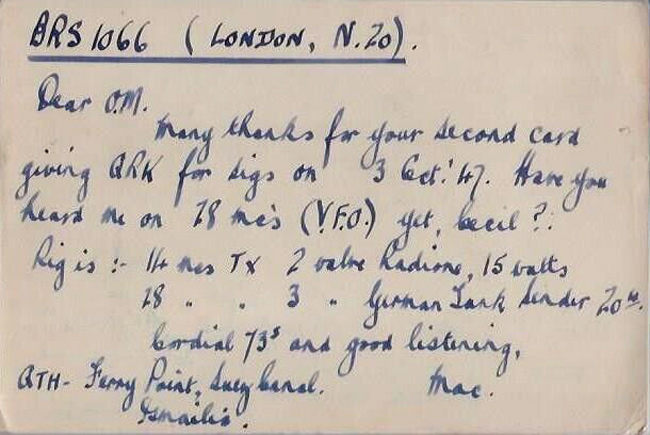 BRS 1066 (LONDON, N.20).
Dear O.M.
Many thanks for your second card
giving QRK for sigs on 3 Oct. '47. Have you
heard me on 28 mc's (V.F.O.) yet, Cecil?.
Rig is :- 14 mcs Tx 2 valve Radione, 15 watts
28 " " 3 " German Tank Sender 20 w.
Cordial 73s and good listening,
QTH - Ferry Point, Suez Canal. Mac.
Ismailia.